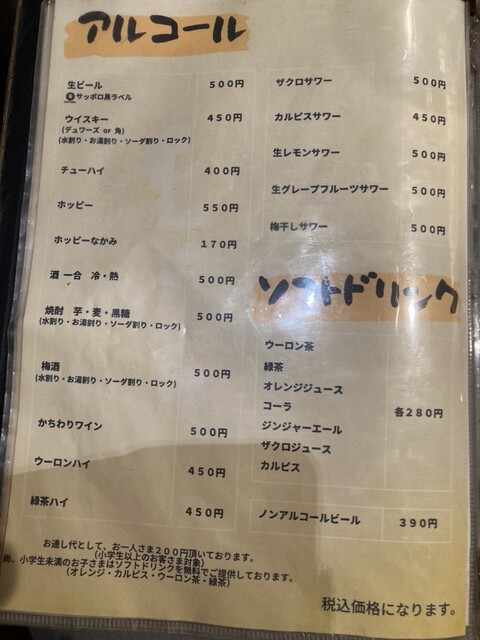 アルコール
生ビール 500円
サッポロ黒ラベル
ウイスキー 450円
(デュワーズ or 角)
(水割り・お湯割り・ソーダ割り・ロック)
チューハイ 400円
ホッピー 550円
ホッピーなかみ 170円
酒 一合 冷・熱 500円
焼酎 芋・麦・黒糖 500円
(水割り・お湯割り・ソーダ割り・ロック)
梅酒 500円
(水割り・お湯割り・ソーダ割り・ロック)
かちわりワイン 500円
ウーロンハイ 450円
緑茶ハイ 450円
ザクロサワー 500円
カルピスサワー 450円
生レモンサワー 500円
生グレープフルーツサワー 500円
梅干しサワー 500円
ソフトドリンク
ウーロン茶
緑茶
オレンジジュース
コーラ 各280円
ジンジャーエール
ザクロジュース
カルピス
ノンアルコールビール 390円
お通し代として、お一人さま200円頂いております。
(小学生以上のお客さま対象)
尚、小学生未満のお子さまはソフトドリンクを無料でご提供しております。
(オレンジ・カルピス・ウーロン茶・緑茶)
税込価格になります。